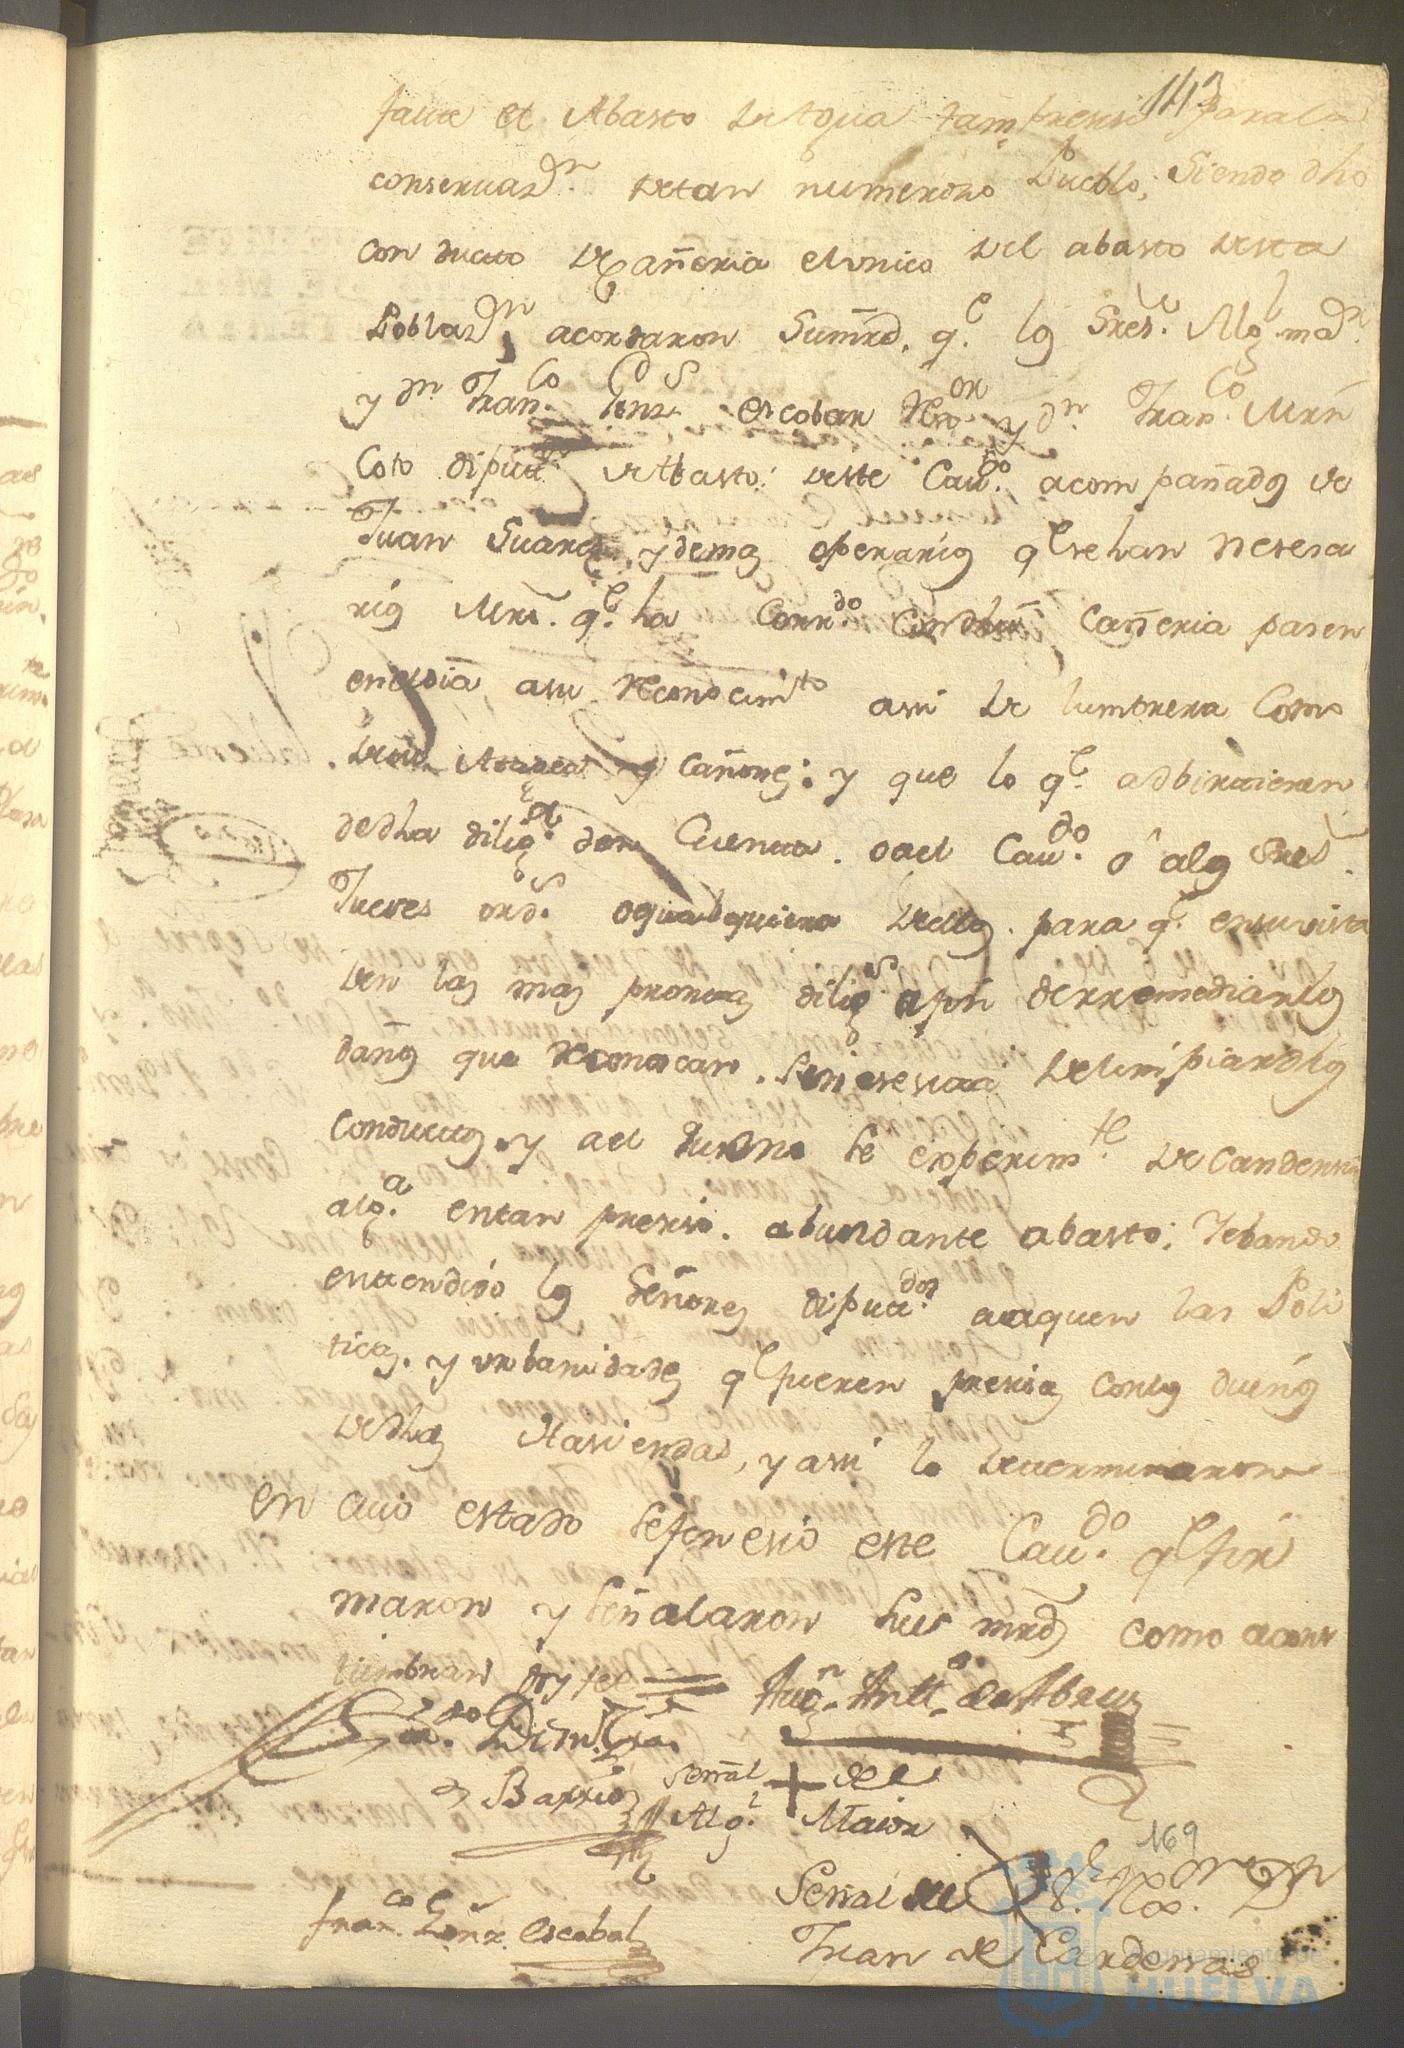 143
faltte el Abasto de Agua tam presisa para la
conservazn. de tan numeroso Pueblo; Siendo dho
conducto de Cañeria el unico del abasto desta
Poblazn, acordaron Sus mrds. qe. los Sres. Alqe. mor.
y dn. Franco. Gonzs. escobar Rexor. y dn. Franco. Mrn
Coto diputs. de Abasto: deste Cavdo. acompañados de
Juan Suares y demas operarios qe se han nesesa
rios Mro. qe. ha Corrdo. Con dha Cañeria pasen
en el dia a su Reconocimto asi de lumbrera Como
de sus y cañones: y que lo qe. adbirtieren
de dha diliga. den Cuenta. o a el Cavdo. ô a los Sres
Jueses ords. o qualquiera dellos. para qe. en su vista
den las mas prontas diligs. a fin de rremediar los
daños que Reconoscan. Sin esesiva de limpiar dhos
Conductos. y a el dueno se experimte. decandensia
alga. en tan presiso. abundante abasto; Yebando
entendido los Señores diputados a aquen las Poli
ticas. y urbanidades qe fueren presisas con los dueños
de dhas Hasiendas, y asi lo determinaron
en cuio estado se fenesio este Cavdo. qe fir
maron y señalaron sus mrds como acons
tumbran doy fee =
Augn. Antto. de Abreu
Lizdo. Dn.
Barrio
Señal + del
Algl. Maior
Señal de
Juan de Cardenas
Franco. Gonz. escobal
169
Ayuntamiento de
HUELVA